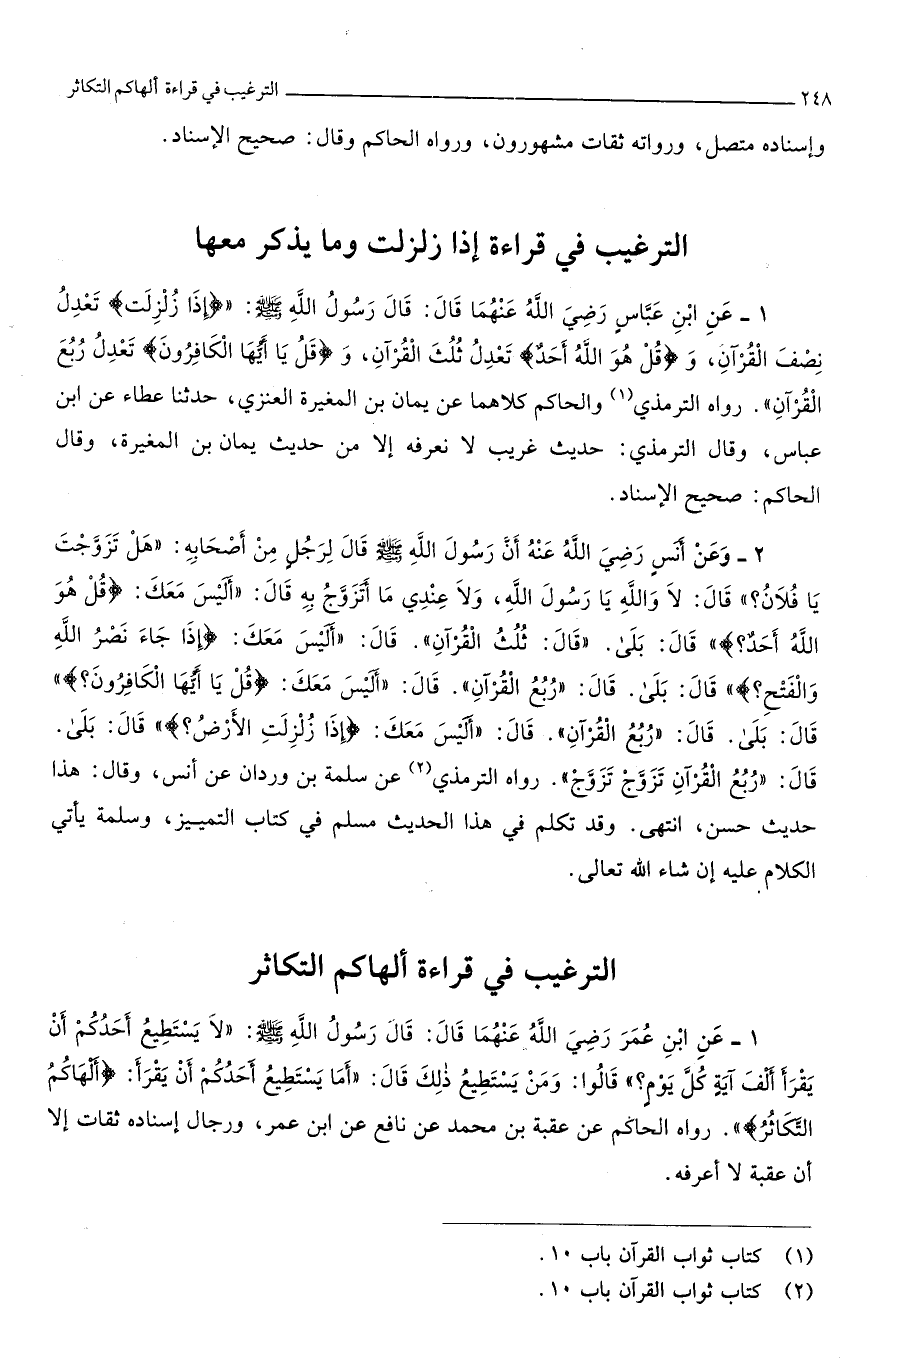 ٢٤٨ ــــــــــــ الترغيب في قراءة ألهاكم التكاثر
وإسناده متصل، ورواته ثقات مشهورون، ورواه الحاكم وقال: صحيح الإسناد.
الترغيب في قراءة إذا زلزلت وما يذكر معها
١ ـ عَنِ ابْنِ عَبَّاسٍ رَضِيَ اللَّهُ عَنْهُمَا قَالَ: قَالَ رَسُولُ اللَّهِ ﷺ: «﴿إِذَا زُلْزِلَت﴾ تَعْدِلُ
نِصْفَ الْقُرْآنِ، وَ ﴿قُلْ هُوَ اللَّهُ أَحَدٌ﴾ تَعْدِلُ ثُلُثَ الْقُرْآنِ، وَ ﴿قُلْ يَا أَيُّهَا الْكَافِرُونَ﴾ تَعْدِلُ رُبُعَ
الْقُرْآنِ». رواه الترمذي(١) والحاكم كلاهما عن يمان بن المغيرة العنزي، حدثنا عطاء عن ابن
عباس، وقال الترمذي: حديث غريب لا نعرفه إلا من حديث يمان بن المغيرة، وقال
الحاكم: صحيح الإسناد.
٢ ـ وَعَنْ أَنَسٍ رَضِيَ اللَّهُ عَنْهُ أَنَّ رَسُولَ اللَّهِ ﷺ قَالَ لِرَجُلٍ مِنْ أَصْحَابِهِ: «هَلْ تَزَوَّجْتَ
يَا فُلَانُ؟» قَالَ: لاَ وَاللَّهِ يَا رَسُولَ اللَّهِ، وَلاَ عِنْدِي مَا أَتَزَوَّجُ بِهِ قَالَ: «أَلَيْسَ مَعَكَ: ﴿قُلْ هُوَ
اللَّهُ أَحَدٌ؟﴾» قَالَ: بَلَىٰ. «قَالَ: ثُلُثُ الْقُرْآنِ». قَالَ: «أَلَيْسَ مَعَكَ: ﴿إِذَا جَاءَ نَصْرُ اللَّهِ
وَالْفَتْحِ؟﴾» قَالَ: بَلَىٰ. قَالَ: «رُبُعُ الْقُرْآنِ». قَالَ: «أَلَيْسَ مَعَكَ: ﴿قُلْ يَا أَيُّهَا الْكَافِرُونَ؟﴾»
قَالَ: بَلَىٰ. قَالَ: «رُبُعُ الْقُرْآنِ». قَالَ: «أَلَيْسَ مَعَكَ: ﴿إِذَا زُلْزِلَتِ الأَرْضُ؟﴾» قَالَ: بَلَىٰ.
قَالَ: «رُبُعُ الْقُرْآنِ تَزَوَّجْ تَزَوَّجْ». رواه الترمذي(٢) عن سلمة بن وردان عن أنس، وقال: هذا
حديث حسن، انتهى. وقد تكلم في هذا الحديث مسلم في كتاب التمييز، وسلمة يأتي
الكلام عليه إن شاء الله تعالى.
الترغيب في قراءة ألهاكم التكاثر
١ ـ عَنِ ابْنِ عُمَرَ رَضِيَ اللَّهُ عَنْهُمَا قَالَ: قَالَ رَسُولُ اللَّهِ ﷺ: «لاَ يَسْتَطِيعُ أَحَدُكُمْ أَنْ
يَقْرَأَ أَلْفَ آيَةٍ كُلَّ يَوْمٍ؟» قَالُوا: وَمَنْ يَسْتَطِيعُ ذٰلِكَ قَالَ: «أَمَا يَسْتَطِيعُ أَحَدُكُمْ أَنْ يَقْرَأَ: ﴿أَلْهَاكُمُ
التَّكَاثُرُ﴾». رواه الحاكم عن عقبة بن محمد عن نافع عن ابن عمر، ورجال إسناده ثقات إلا
أن عقبة لا أعرفه.
(١) كتاب ثواب القرآن باب ١٠.
(٢) كتاب ثواب القرآن باب ١٠.